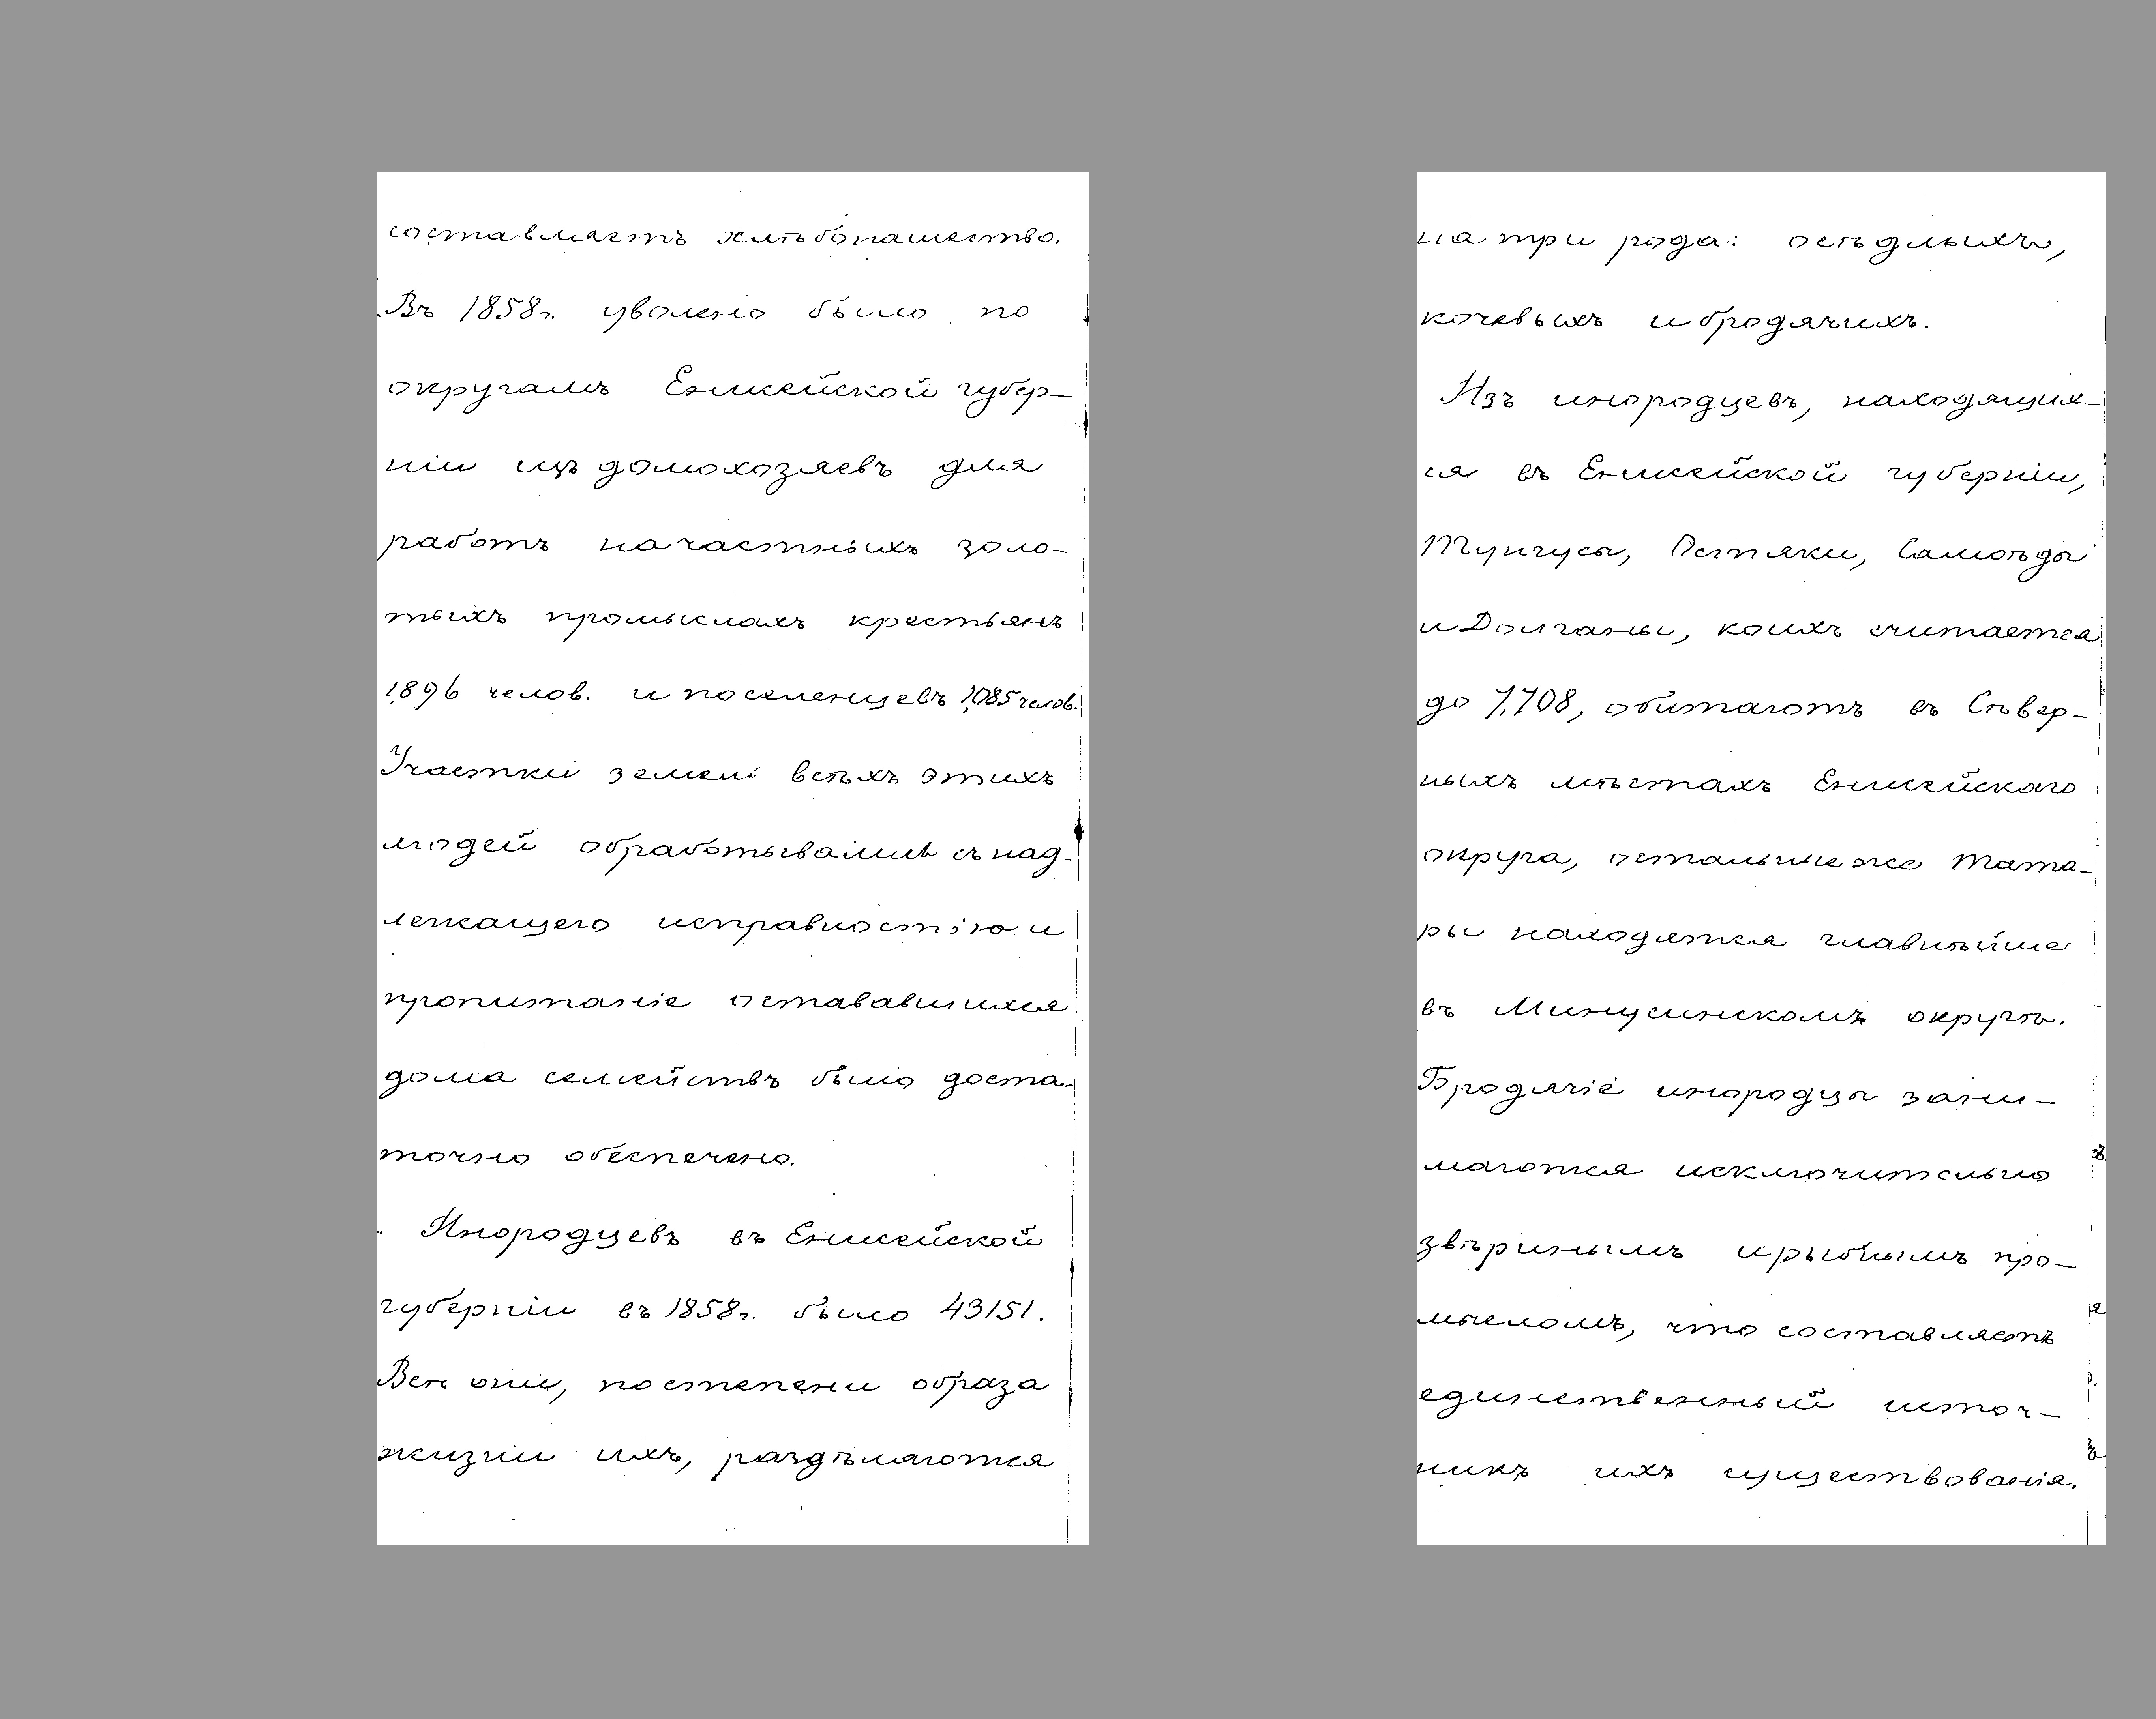 составляетъ хлѣбопашество.
Въ 1858г. уволено было по
округамъ Енисейской губер-
ніи изъ домохозяевъ для
работъ на частныхъ золо-
тыхъ промыслахъ крестьянъ
1,896 челов. и поселенцевъ 1,085 челов.
Участки земли всѣхъ этихъ
людей обработывались съ над-
лежащею исправностію и
пропитаніе остававшихся
дома семействъ было доста-
точно обеспечено.
Инородцевъ въ Енисейской
губерніи въ 1858г. было 43151.
Всѣ они, по степени образа
жизни ихъ, раздѣляются
на три рода: осѣдлыхъ,
кочевыхъ и бродячихъ.
Изъ инородцевъ, находящих-
ся въ Енисейской губерніи,
Тунгусы, Остяки, Самоѣды
и Долганы, коихъ считается
до 7,708, обитаютъ въ Сѣвер-
ныхъ мѣстахъ Енисейскаго
округа, остальные же Тата-
ры находятся главнѣйше
въ Минусинскомъ округѣ.
Бродячіе инородцы зани-
маются исключительно
звѣринымъ и рыбнымъ про-
мысломъ, что составляетъ
единственный источ-
никъ ихъ существованія.